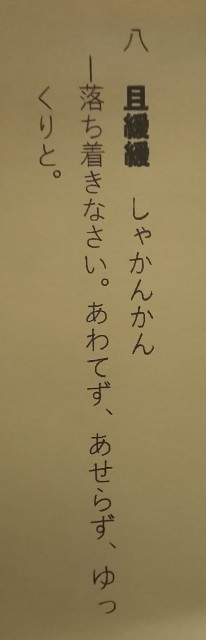 八 且緩緩 しゃかんかん
―落ち着きなさい。あわてず、あせらず、ゆっ
くりと。